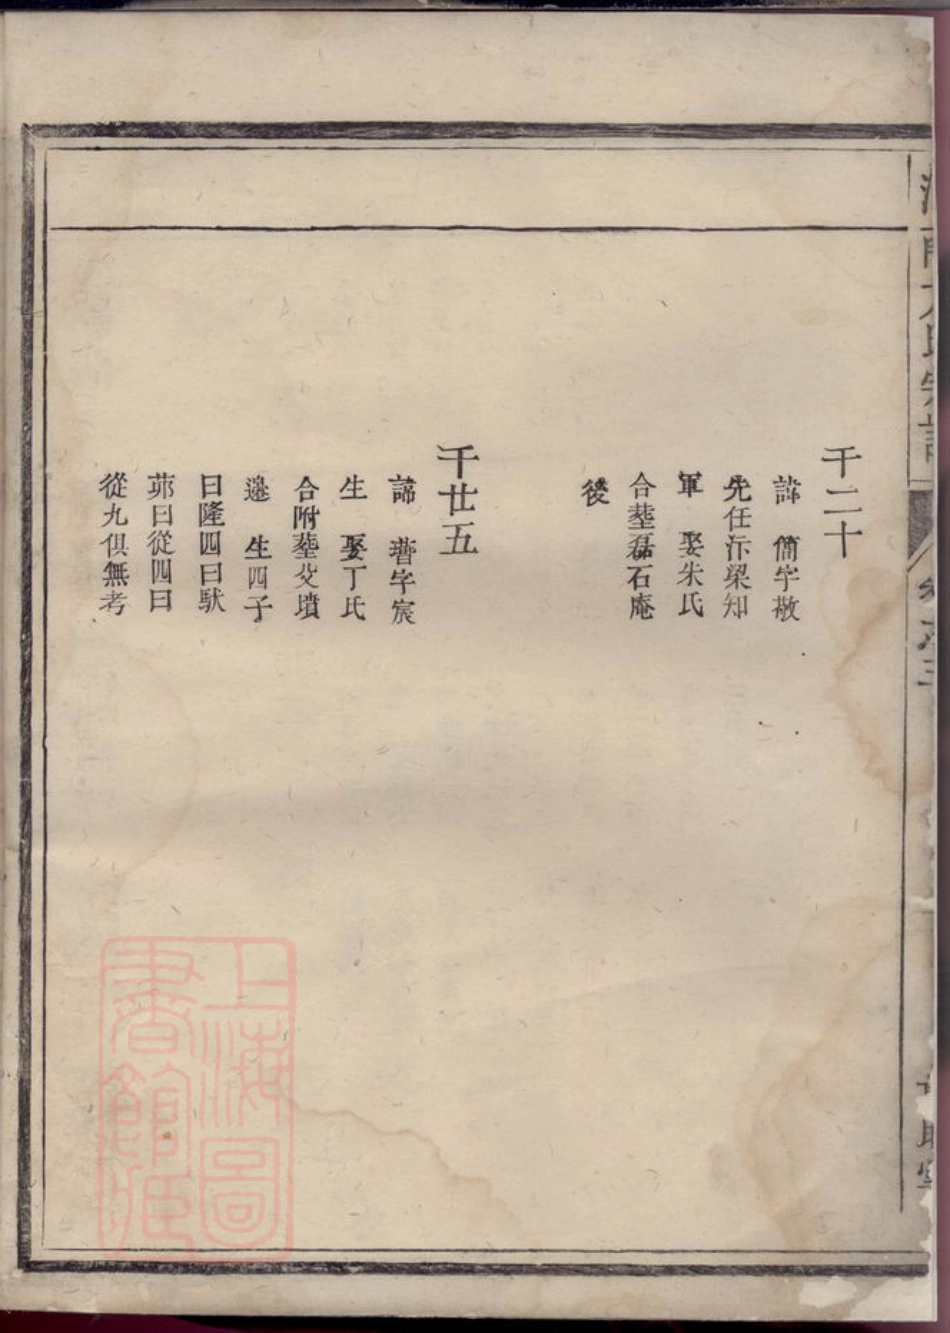 千二十
諱 簡字敬
先任汴梁知
軍 娶朱氏
合塟磊石庵
後
千廿五
諱 瑨字宸
生 娶丁氏
合附塟父墳
邊 生四子
曰隆四曰
茆曰從四曰
從九俱無考
卷之三
上海圖
書館藏